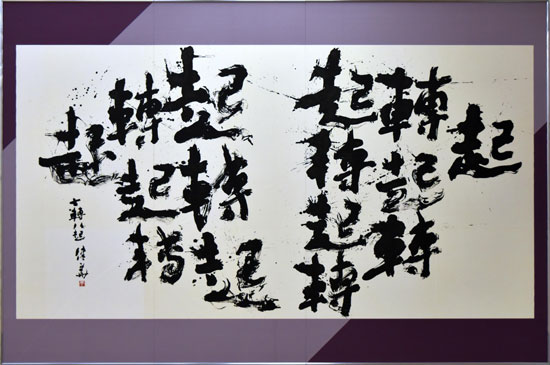 起
轉起轉
起轉起轉
起轉起
轉起轉
起
七轉八起